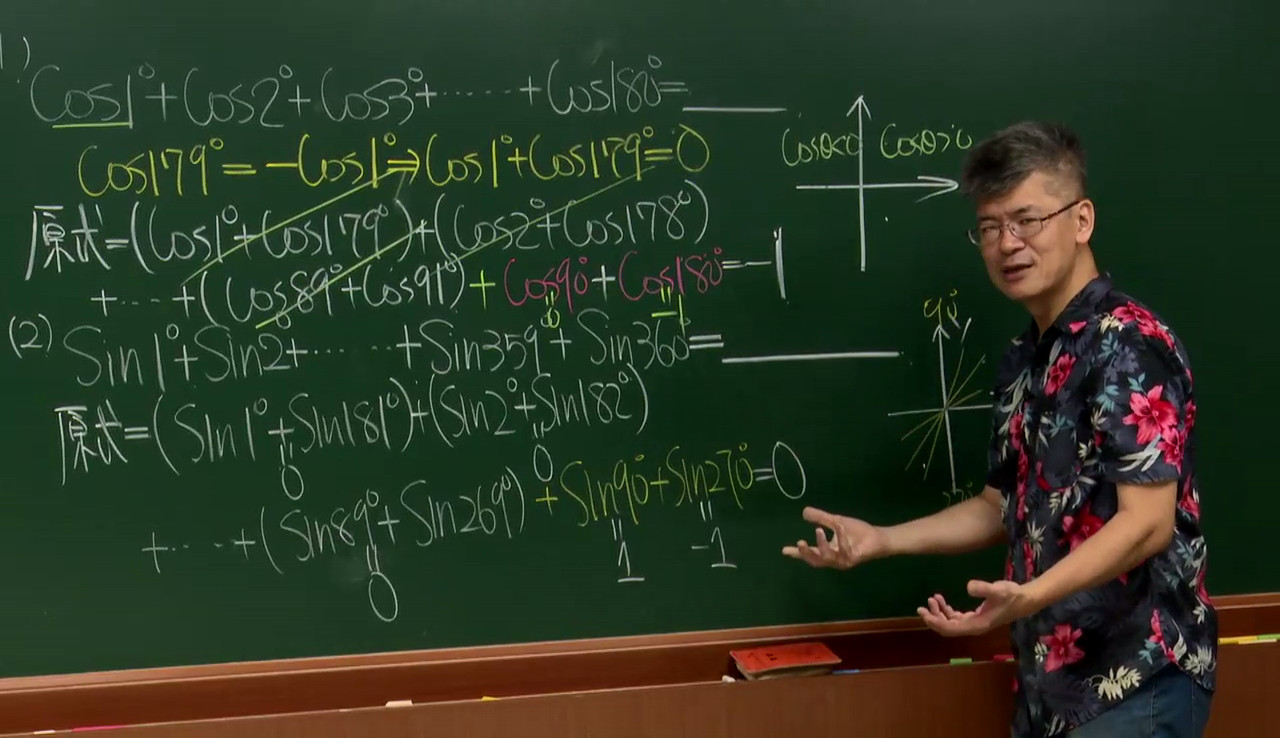 1)
Cos1°+Cos2°+Cos3°+......+Cos180°=____
Cos179°=-Cos1°⇒Cos1°+Cos179°=0
Cosθ<0 Cosθ>0
原式=(Cos1°+Cos179°)+(Cos2°+Cos178°)
+....+(Cos89°+Cos91°)+Cos90°+Cos180°=-1
0 -1
(2) Sin1°+Sin2+......+Sin359°+Sin360°=____
90°
原式=(Sin1°+Sin181°)+(Sin2°+Sin182°)
0 0
+....+(Sin89°+Sin269°)+Sin90°+Sin270°=0
0 1 -1